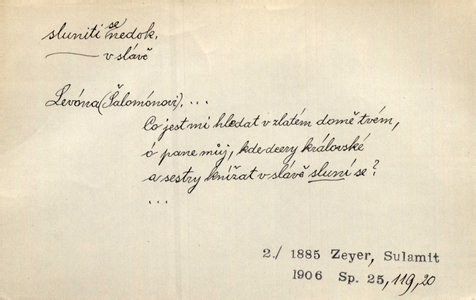 sluniti se nedok.
v slávě
Levóna (Šalomónovi). . . .
Co jest mi hledat v zlatém domě tvém,
ó pane můj, kde dcery královské
a sestry knížat v slávě sluní se?
. . .
2./ 1885 Zeyer, Sulamit
1906 Sp. 25, 119, 20